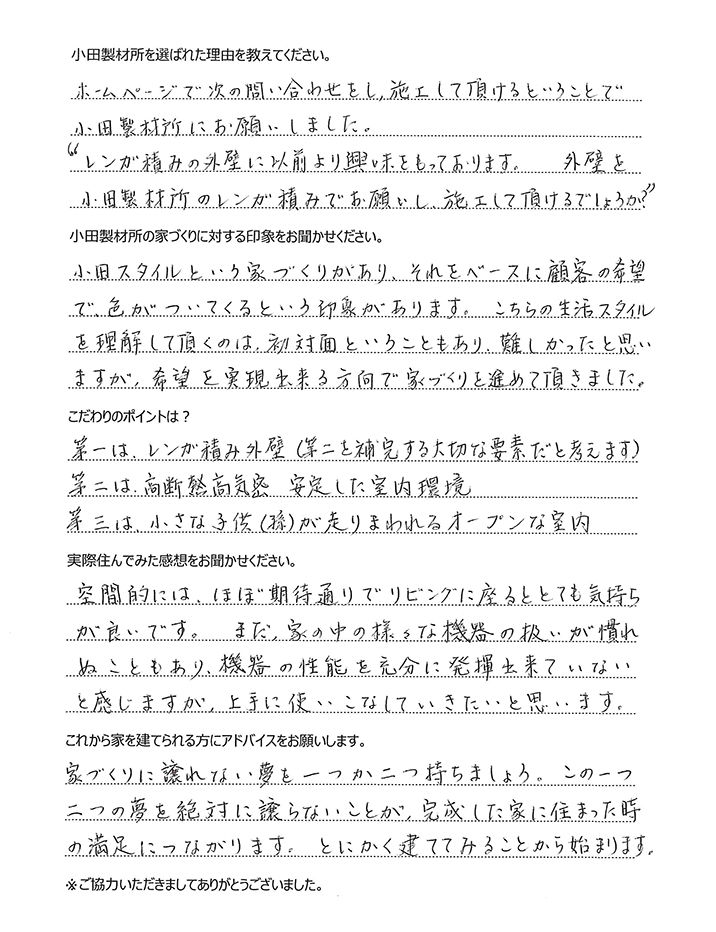 小田製材所を選ばれた理由を教えてください。
ホームページで次の問い合わせをし、施工して頂けるということで
小田製材所にお願いしました。
“レンガ積みの外壁に以前より興味をもっております。 外壁を
小田製材所のレンガ積みでお願いし、施工して頂けるでしょうか?”
小田製材所の家づくりに対する印象をお聞かせください。
小田スタイルという家づくりがあり、それをベースに顧客の希望
で、色がついてくるという印象があります。 こちらの生活スタイル
を理解して頂くのは、初対面ということもあり、難しかったと思い
ますが、希望を実現出来る方向で家づくりを進めて頂きました。
こだわりのポイントは？
第一は、レンガ積み外壁(第二を補完する大切な要素だと考えます)
第二は、高断熱高気密 安定した室内環境
第三は、小さな子供(孫)が走りまわれるオープンな室内
実際住んでみた感想をお聞かせください。
空間的には、ほぼ期待通りでリビングに座るととても気持ち
が良いです。 まだ、家の中の様々な機器の扱いが慣れ
ぬこともあり、機器の性能を充分に発揮出来ていない
と感じますが、上手に使いこなしていきたいと思います。
これから家を建てられる方にアドバイスをお願いします。
家づくりに譲れない夢を一つか二つ持ちましょう。この一つ
二つの夢を絶対に譲らないことが、完成した家に住まった時
の満足につながります。 とにかく建ててみることから始まります。
※ご協力いただきましてありがとうございました。